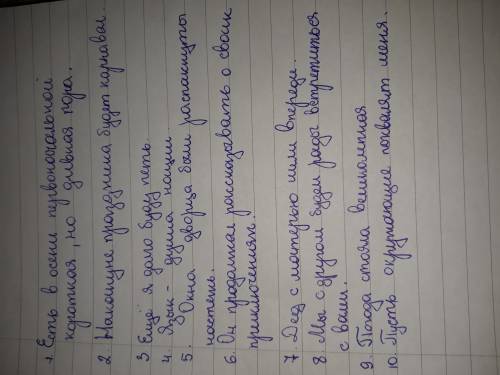 1. Есть в осени первоначальной
короткая, но дивная пора.
2. Накануне праздника будет карнавал.
3 Ещё я дамо буду петь.
4. Язык - душа нации
5. Окна дворца были распахнуты
настежь.
6. Он продолжал рассказывать о своих
приключениях.
7. Дед с матерью шли впереди.
8. Мы с другом будем рады встретиться
с вами.
9. Погода стояла великолепная
10. Пусть окружающие похвалят меня.